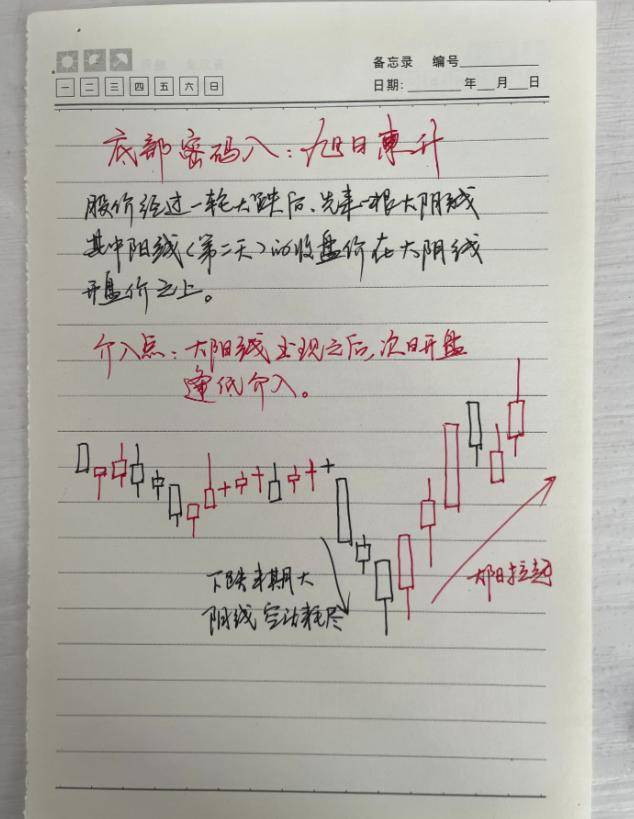 备忘录 编号
一 二 三 四 五 六 日
日期: 年 月 日
底部密码八：旭日東升
股价经过一轮大跌后、先来一根大阴线
其中阳线(第二天)的收盘价在大阴线
开盘价之上。
介入点：大阳线出现之后，次日开盘
逢低介入。
下跌末期大
阴线 空 耗尽
拉起